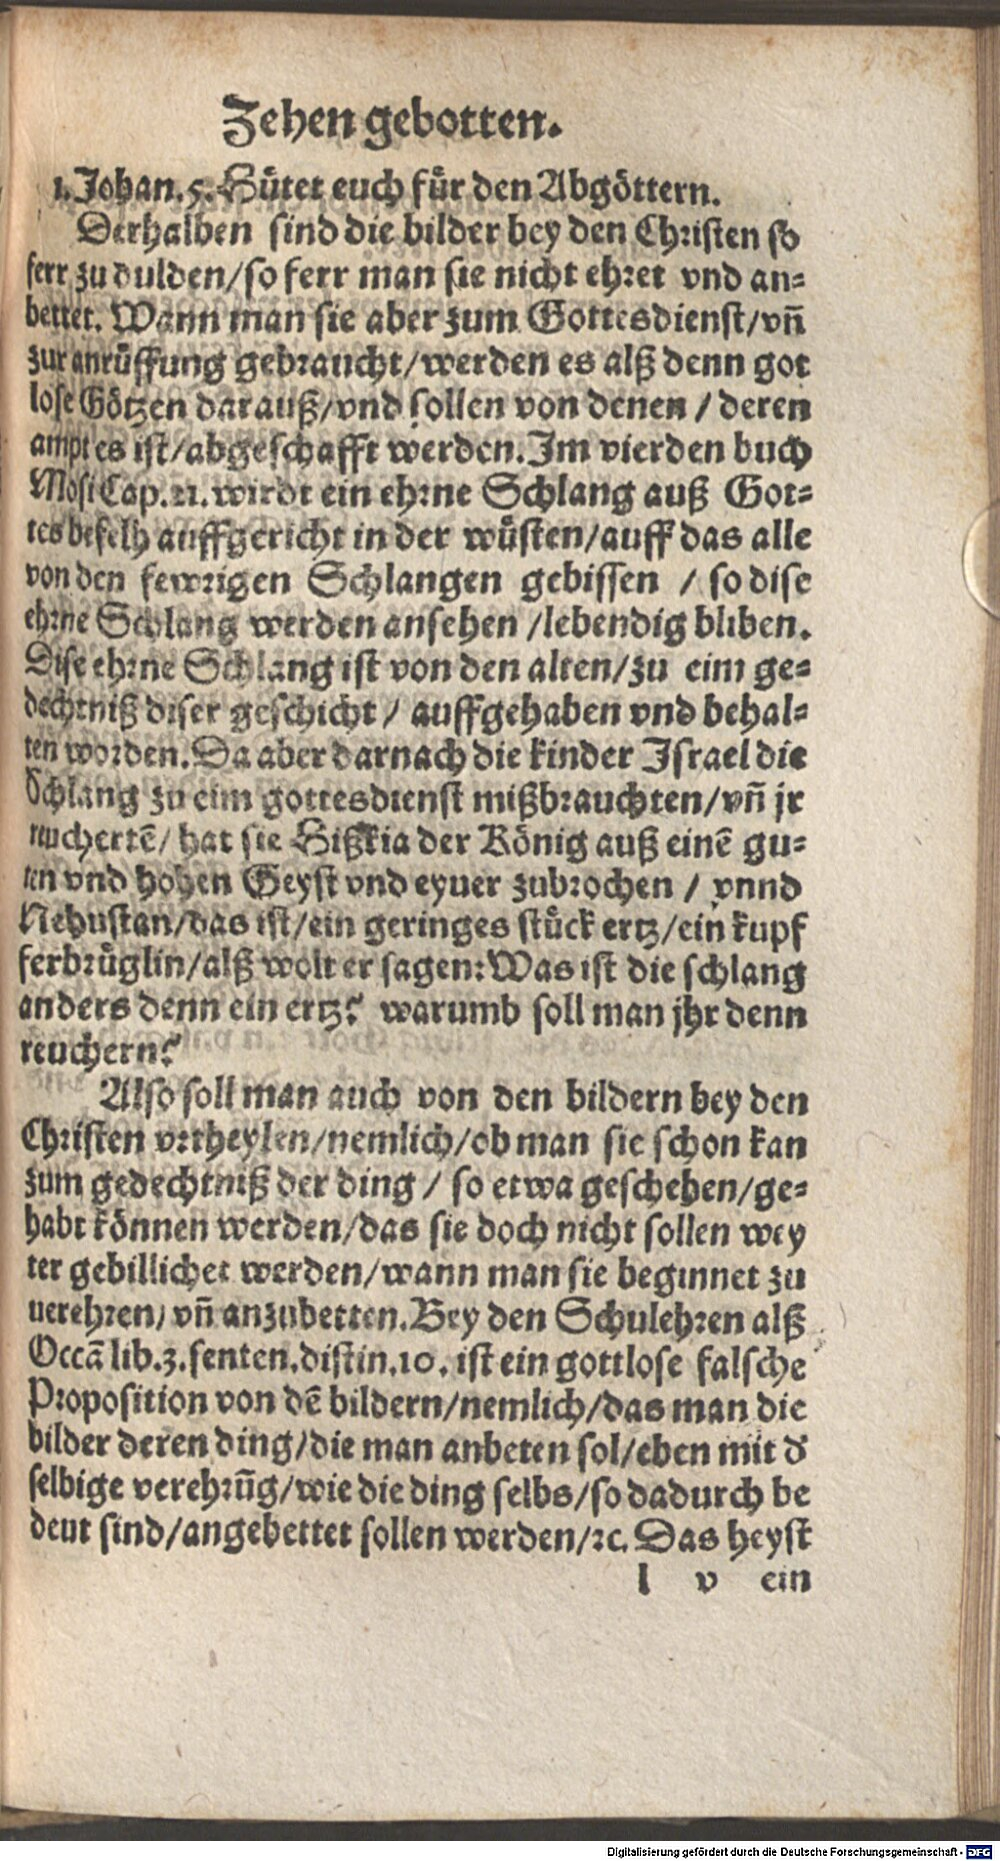 Zehen gebotten.
1. Johan. 5. Hütet euch für den Abgöttern.
Derhalben sind die bilder bey den Christen so
ferr zu dulden/so ferr man sie nicht ehret vnd an=
bettet. Wann man sie aber zum Gottesdienst/vñ
zur anrüffung gebraucht/werden es alß denn got
lose Götzen darauß/vnd sollen von denen / deren
ampt es ist/abgeschafft werden. Im vierden buch
Mosi Cap. 21. wirdt ein ehrne Schlang auß Got=
tes befelh auffgericht in der wüsten/auff das alle
von den fewrigen Schlangen gebissen / so dise
ehrne Schlang werden ansehen /lebendig bliben.
Dise ehrne Schlang ist von den alten/zu eim ge=
dechtniß diser geschicht / auffgehaben vnd behal=
ten worden. Da aber darnach die kinder Israel die
Schlang zu eim gottesdienst mißbrauchten/vñ jr
reuchertē/ hat sie Hißkia der König auß einē gu=
ten vnd hohen Geyst vnd eyuer zubrochen / vnnd
Nehustan/das ist/ein geringes stück ertz/ein kupf
ferbrüglin/alß wolt er sagen: Was ist die schlang
anders denn ein ertz? warumb soll man jhr denn
reuchern?
Also soll man auch von den bildern bey den
Christen vrtheylen/nemlich/ob man sie schon kan
zum gedechtniß der ding / so etwa geschehen/ge=
habt können werden/das sie doch nicht sollen wey
ter gebillichet werden/wann man sie beginnet zu
uerehren/ vñ anzubetten. Bey den Schulehren alß
Occā lib. 3. senten. distin. 10. ist ein gottlose falsche
Proposition von dē bildern/nemlich/das man die
bilder deren ding/die man anbeten sol/eben mit d'
selbige verehrūg/wie die ding selbs/so dadurch be
deut sind/angebettet sollen werden/ꝛc. Das heyst
l v ein
Digitalisierung gefördert durch die Deutsche Forschungsgemeinschaft - DFG